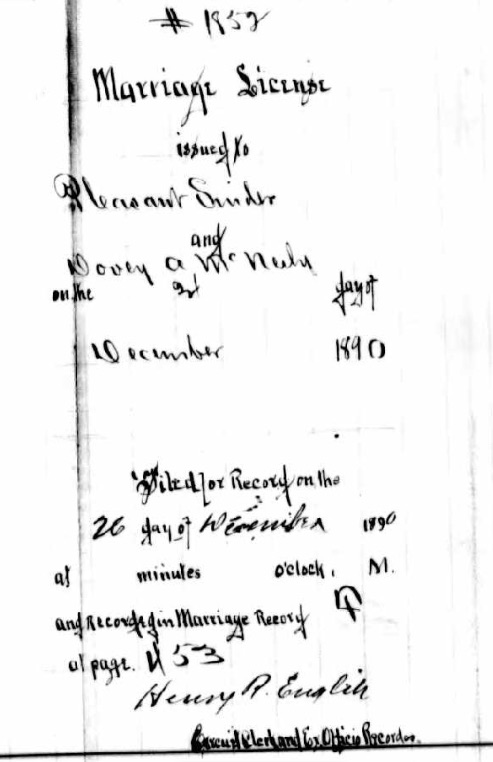 # 1852
Marriage License
issued to
Pleasant Snider
and
Dovey A McNeely
on the 2d day of
December 1890
Filed for Record on the
26 day of December 1890
at minutes o'clock, M.
and Recorded in Marriage Record
at page. 453
Henry R. English
Circuit Clerk and Ex Officio Recorder.